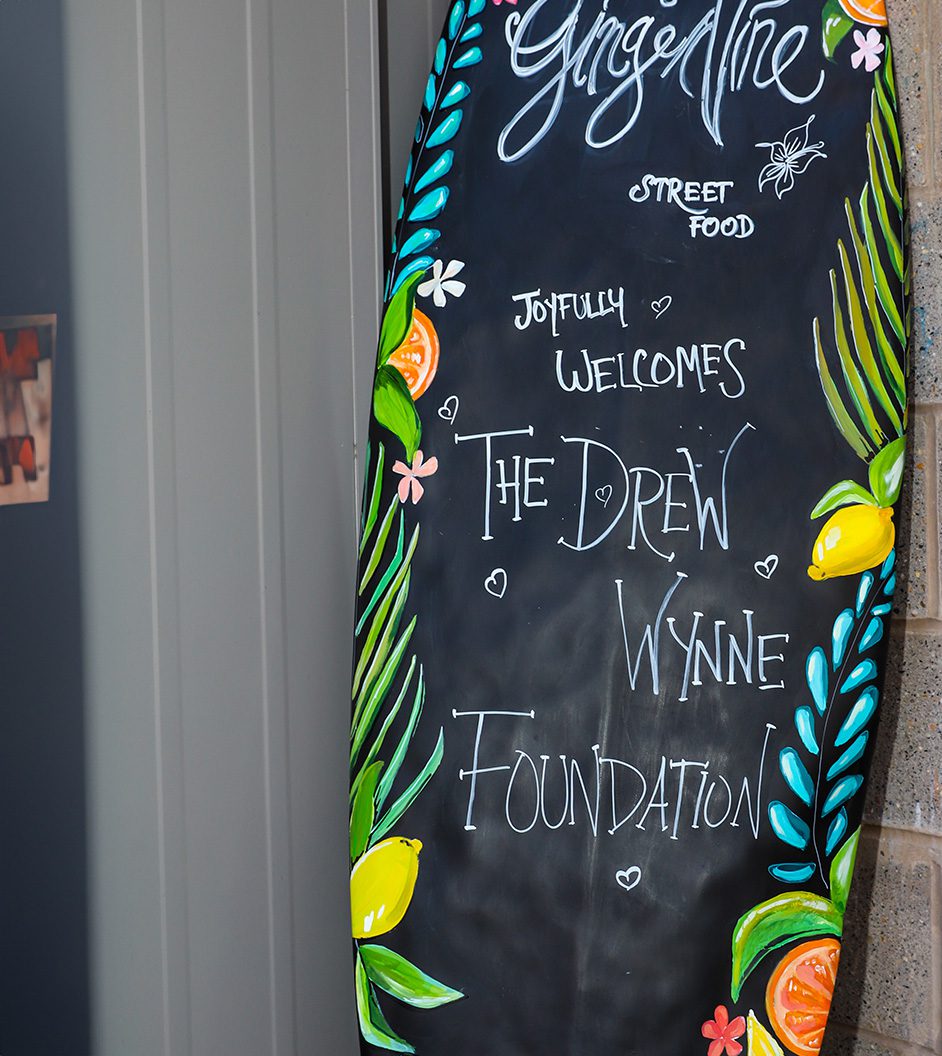 GingerVine
STREET
FOOD
JOYFULLY
WELCOMES
THE DREW
WYNNE
FOUNDATION